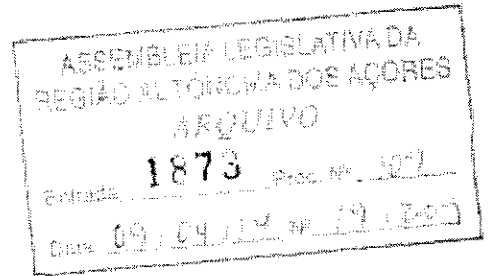 ASSEMBLEIA LEGISLATIVA DA
REGIÃO AUTÓNOMA DOS AÇORES
ARQUIVO
Entrada 1873 Proc. Nº
Data: 09 / 04 Nº